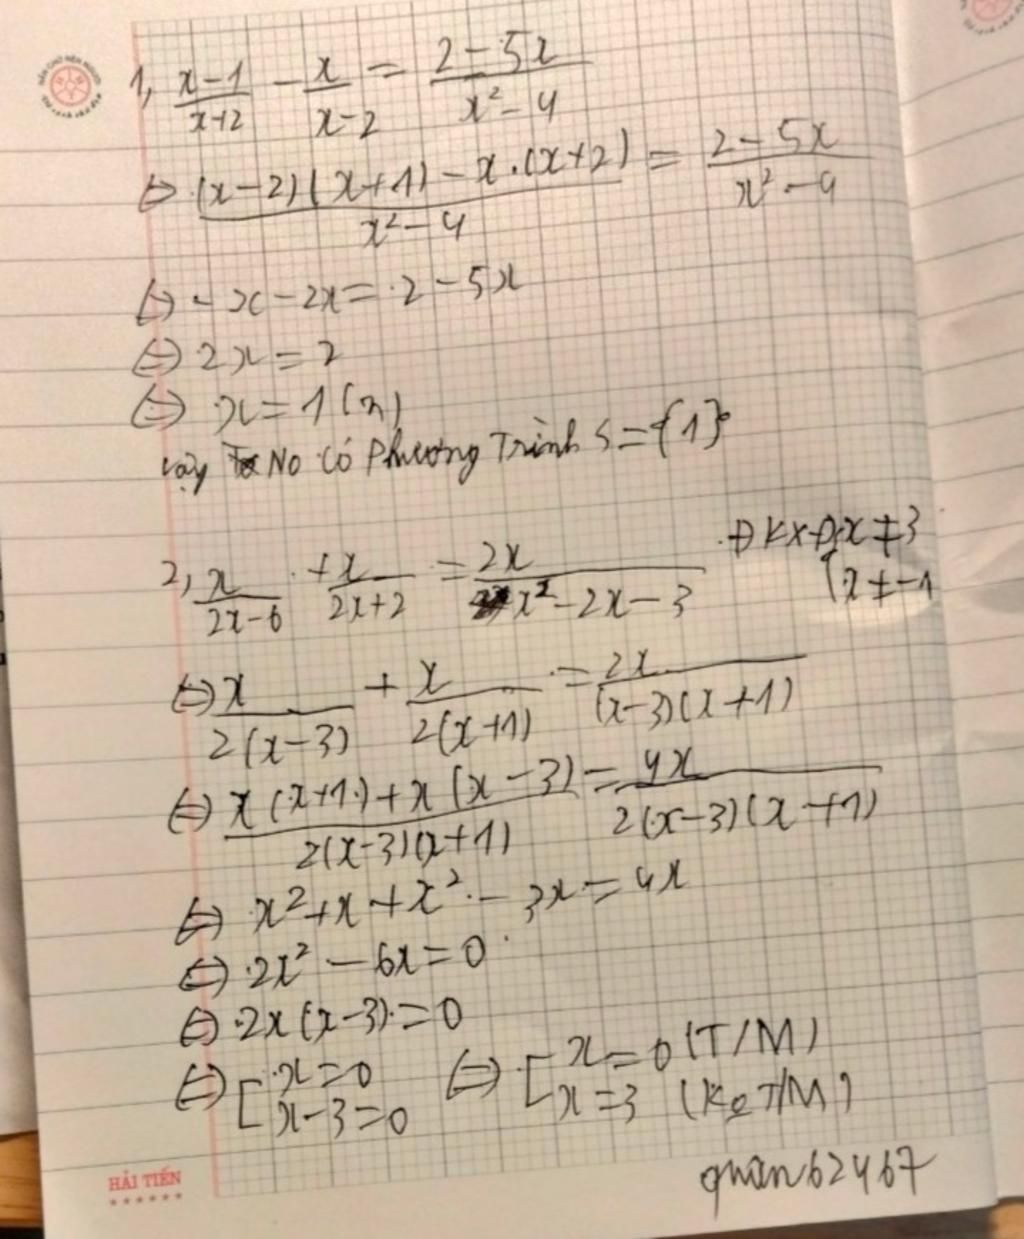 1, \frac{x-1}{x+2} - \frac{x}{x-2} = \frac{2-5x}{x^2-4}
⇔ \frac{(x-2)(x+1) - x.(x+2)}{x^2-4} = \frac{2-5x}{x^2-4}
⇔ -x-2x = 2-5x
⇔ 2x = 2
⇔ x = 1 (n)
vậy No có Phương Trình S = {1}
2, \frac{x}{2x-6} + \frac{x}{2x+2} = \frac{2x}{x^2-2x-3} ĐKXĐ x ≠ 3
x ≠ -1
⇔ \frac{x}{2(x-3)} + \frac{x}{2(x+1)} = \frac{2x}{(x-3)(x+1)}
⇔ \frac{x(x+1) + x(x-3)}{2(x-3)(x+1)} = \frac{4x}{2(x-3)(x+1)}
⇔ x^2+x+x^2-3x = 4x
⇔ 2x^2-6x = 0
⇔ 2x(x-3) = 0
⇔ [ x = 0 ⇔ [ x = 0 (T/M)
x-3 = 0 x = 3 (Ko T/M)
HẢI TIẾN
quân62467